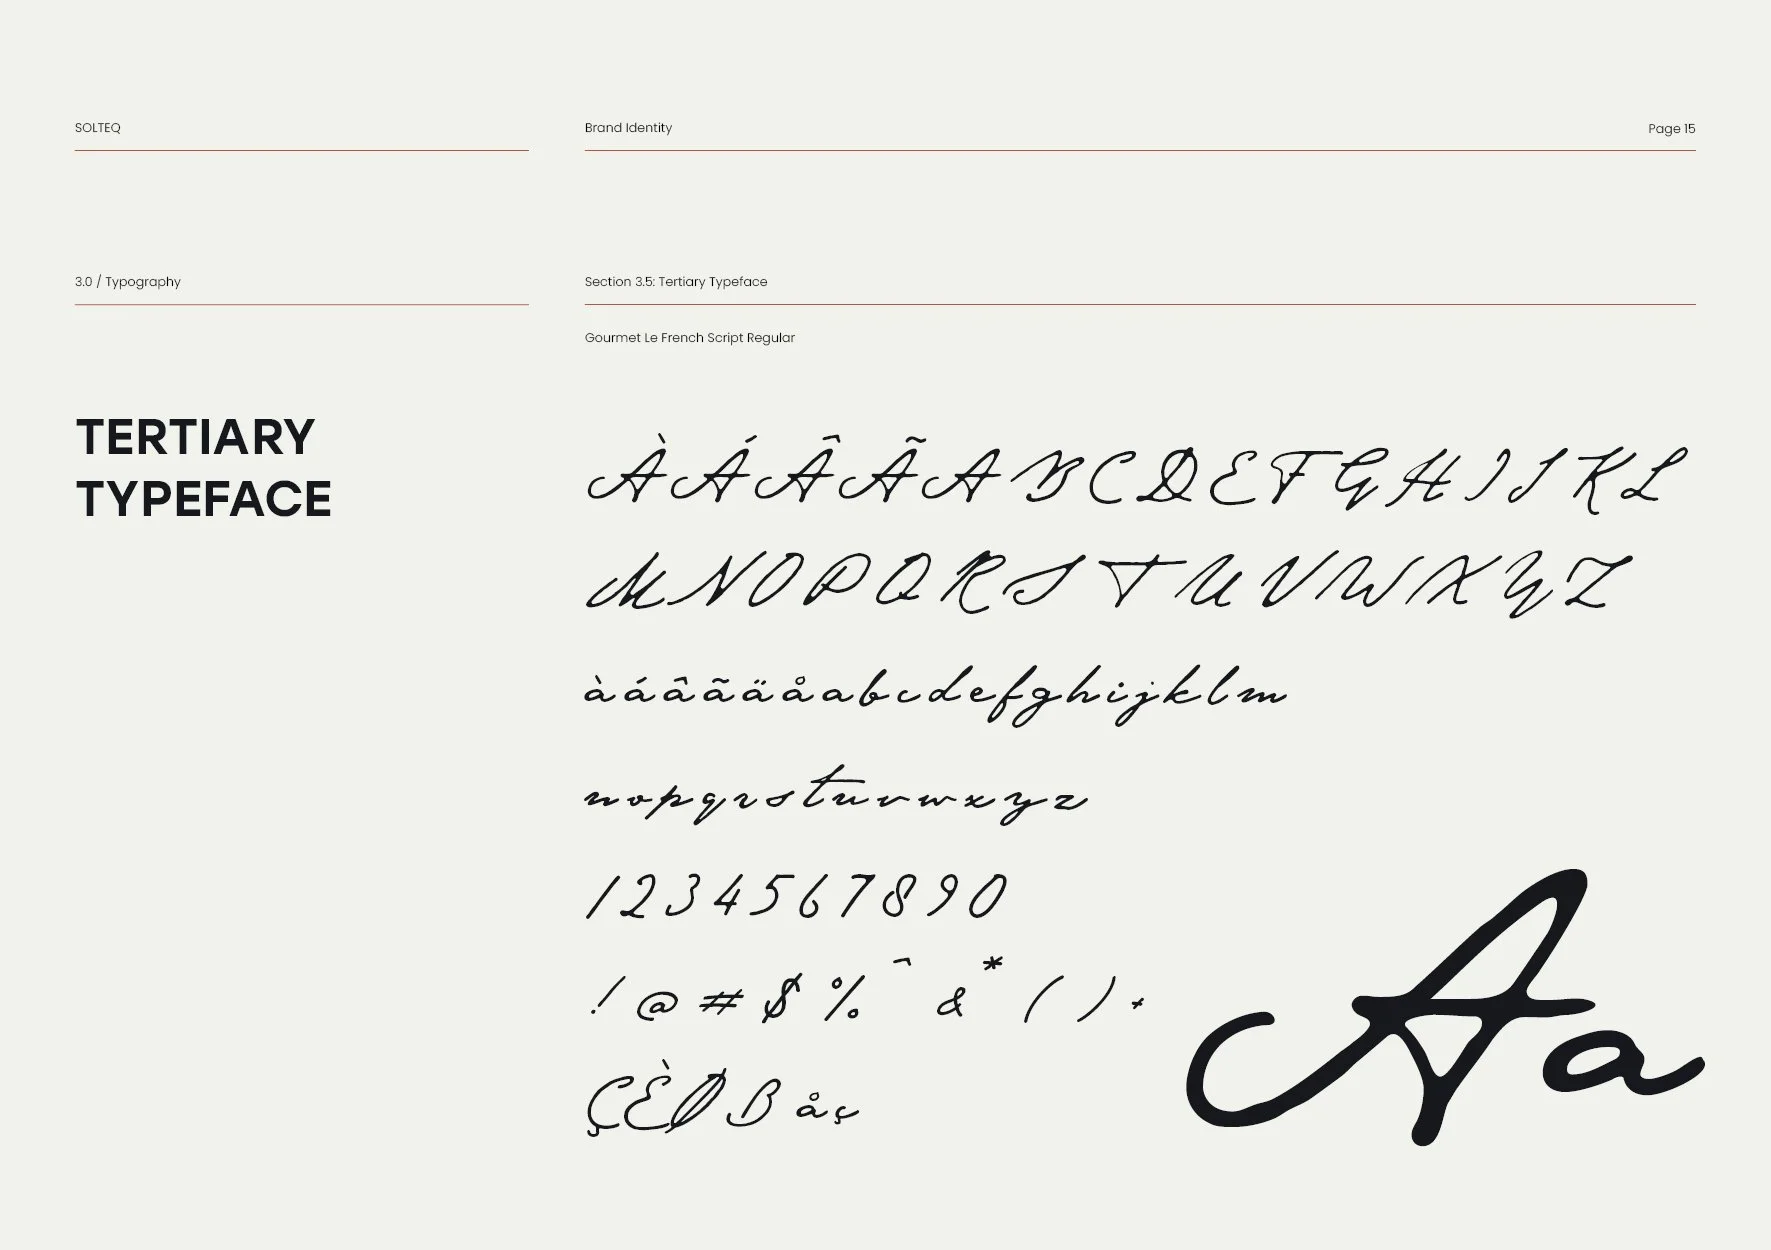 SOLTEQ
Brand Identity
Page 15
3.0 / Typography
Section 3.5: Tertiary Typeface
Gourmet Le French Script Regular
TERTIARY
TYPEFACE
À Á Â Ã A B C D E F G H I J K L
M N O P Q R S T U V W X Y Z
à á â ã ä å a b c d e f g h i j k l m
n o p q r s t u v w x y z
1 2 3 4 5 6 7 8 9 0
! @ # $ % ^ & * ( ) +
Ç È Ø ß å ç
Aa